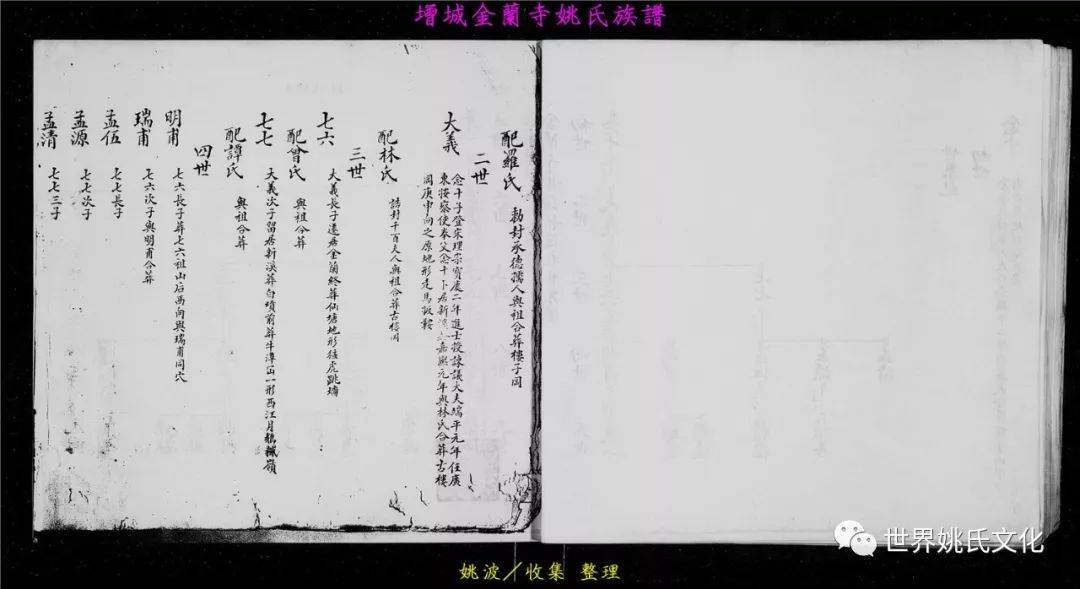 增城金蘭寺姚氏族譜
配羅氏 勅封承德孺人與祖合葬樓子岡
二世
大義 念十子登宋理宗寶慶二年進士授諫議大夫端平元年任廣
東按察使奉父念十卜居新 嘉熙元年與林氏合葬古樓
岡庚申向之原地形走馬 鞍
配林氏 誥封 夫人與祖合葬古樓岡
三世
七六 大義長子遷居金蘭終葬仙塘地形猛虎跳墻
配曾氏 與祖合葬
七七 大義次子留居新溪葬白墳前葬牛潭 一形西江月 嶺
配譚氏 與祖合葬
四世
明甫 七六長子葬七六祖山后西向與瑞甫同穴
瑞甫 七六次子與明甫合葬
孟伍 七七長子
孟源 七七次子
孟清 七七三子
世界姚氏文化
姚波／收集 整理